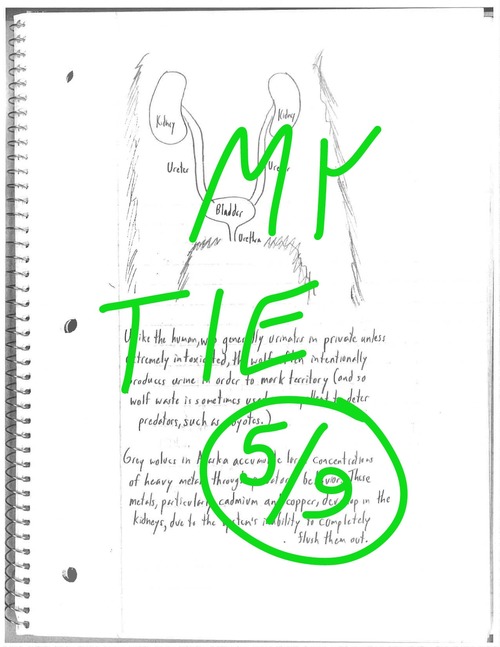 Kidney
Kidney
Ureter
Ureter
Bladder
Urethra
MY
TIE
Unlike the human, who generally urinates in private unless
extremely intoxicated, the wolf often intentionally
produces urine in order to mark territory (and so
wolf waste is sometimes used to deter
predators, such as coyotes.)
5/9
Grey wolves in Alaska accumulate large concentrations
of heavy metals through behavior. These
metals, particularly cadmium and copper, develop in the
kidneys, due to the system's inability to completely
flush them out.